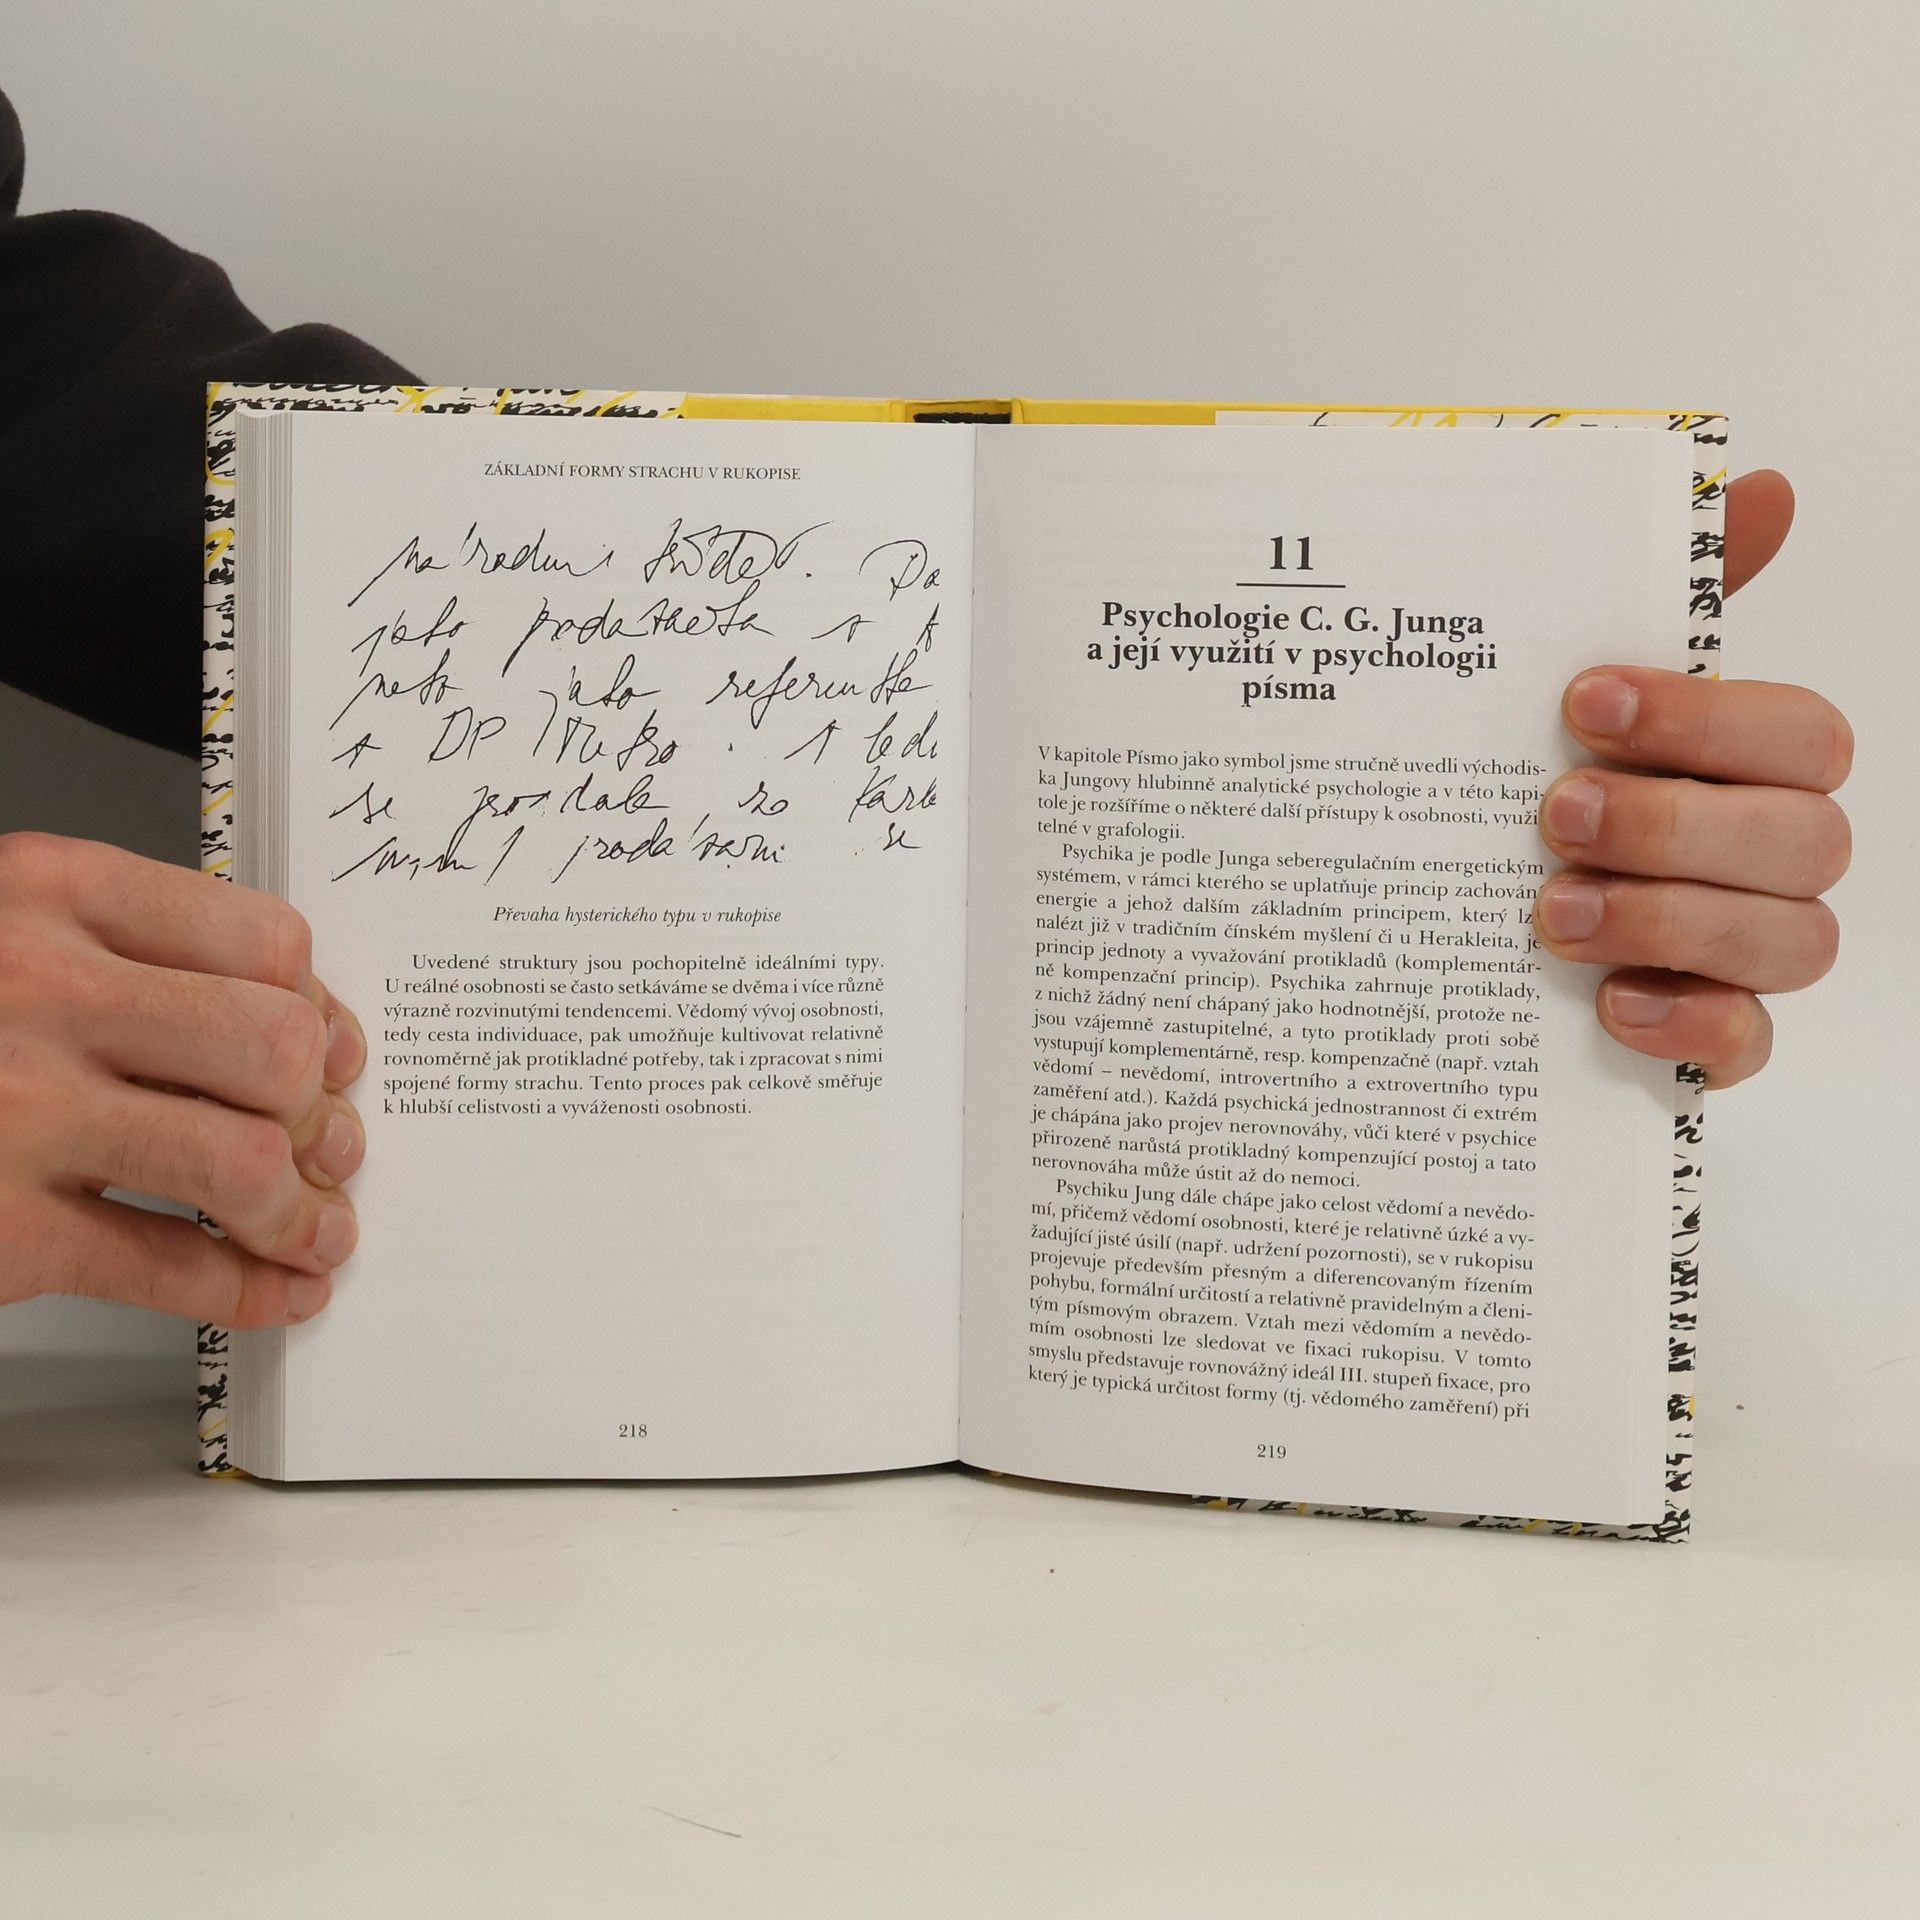 ZÁKLADNÍ FORMY STRACHU V RUKOPISE
jako podatelka
nebo jako referentka
DP Metro
se prodala, za
se
Převaha hysterického typu v rukopise
Uvedené struktury jsou pochopitelně ideálními typy.
U reálné osobnosti se často setkáváme se dvěma i více různě
výrazně rozvinutými tendencemi. Vědomý vývoj osobnosti,
tedy cesta individuace, pak umožňuje kultivovat relativně
rovnoměrně jak protikladné potřeby, tak i zpracovat s nimi
spojené formy strachu. Tento proces pak celkově směřuje
k hlubší celistvosti a vyváženosti osobnosti.
218
11
Psychologie C. G. Junga
a její využití v psychologii
písma
V kapitole Písmo jako symbol jsme stručně uvedli východis-
ka Jungovy hlubinně analytické psychologie a v této kapi-
tole je rozšíříme o některé další přístupy k osobnosti, využi
telné v grafologii.
Psychika je podle Junga seberegulačním energetickým
systémem, v rámci kterého se uplatňuje princip zachování
energie a jehož dalším základním principem, který lz
nalézt již v tradičním čínském myšlení či u Herakleita, je
princip jednoty a vyvažování protikladů (komplementár-
ně kompenzační princip). Psychika zahrnuje protiklady,
z nichž žádný není chápaný jako hodnotnější, protože ne-
jsou vzájemně zastupitelné, a tyto protiklady proti sobě
vystupují komplementárně, resp. kompenzačně (např. vztah
vědomí – nevědomí, introvertního a extrovertního typu
zaměření atd.). Každá psychická jednostrannost či extrém
je chápána jako projev nerovnováhy, vůči které v psychice
přirozeně narůstá protikladný kompenzující postoj a tato
nerovnováha může ústit až do nemoci.
Psychiku Jung dále chápe jako celost vědomí a nevědo-
mí, přičemž vědomí osobnosti, které je relativně úzké a vy-
žadující jisté úsilí (např. udržení pozornosti), se v rukopisu
projevuje především přesným a diferencovaným řízením
pohybu, formální určitostí a relativně pravidelným a členi-
tým písmovým obrazem. Vztah mezi vědomím a nevědo-
mím osobnosti lze sledovat ve fixaci rukopisu. V tomto
smyslu představuje rovnovážný ideál III. stupeň fixace, pro
který je typická určitost formy (tj. vědomého zaměření) při
219